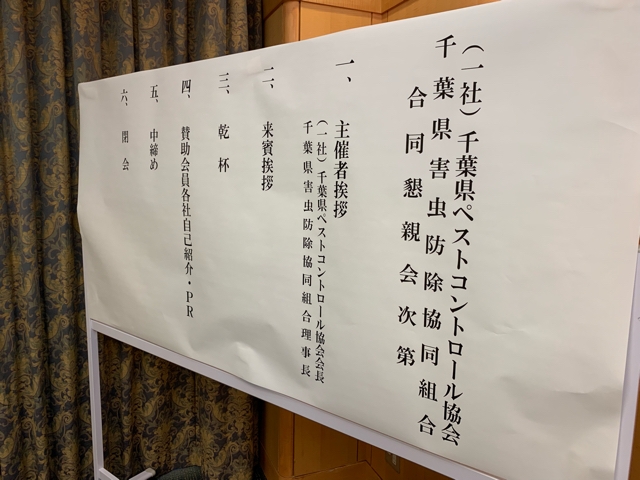 （一社）千葉県ペストコントロール協会
千葉県害虫防除協同組合
合同懇親会次第
一、主催者挨拶
（一社）千葉県ペストコントロール協会会長
千葉県害虫防除協同組合理事長
二、来賓挨拶
三、乾杯
四、賛助会員各社自己紹介・ＰＲ
五、中締め
六、閉会